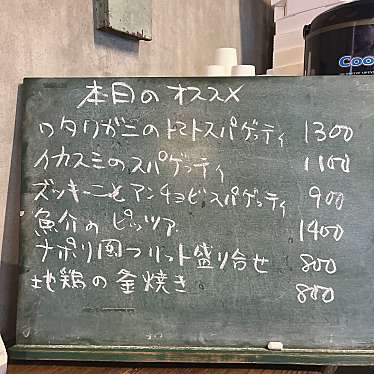 COO
本日のオススメ
ワタリガニのトマトスパゲッティ 1300
イカスミのスパゲッティ 1100
ズッキーニとアンチョビスパゲッティ 900
魚介のピッツァ 1400
ナポリ風フリット盛り合せ 800
地鶏の釜焼き 800